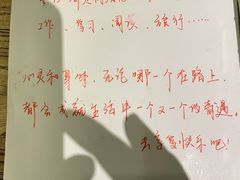 工作、学习、阅读、旅行……
心灵和身体，无论哪一个在路上
都会成就生活中一个又一个的奇遇。
去享受快乐吧！